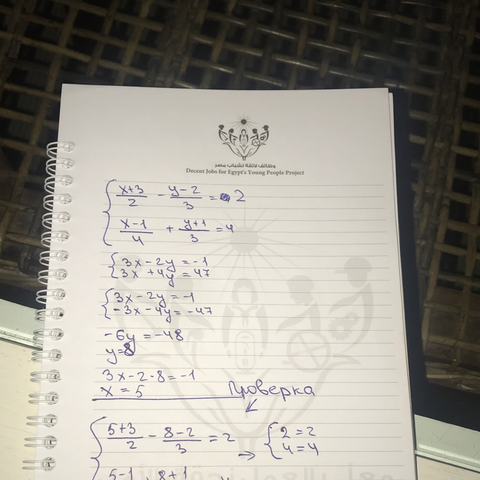 وظائف لائقة لشباب مصر
Decent Jobs for Egypt's Young People Project
{ (x+3)/2 - (y-2)/3 = 2
(x-1)/4 + (y+1)/3 = 4
{ 3x-2y=-1
3x+4y=47
{ 3x-2y=-1
-3x-4y=-47
-6y=-48
y=8
3x-2·8=-1
x=5
Проверка
{ (5+3)/2 - (8-2)/3 = 2 → { 2=2
4=4
5-1 8+1